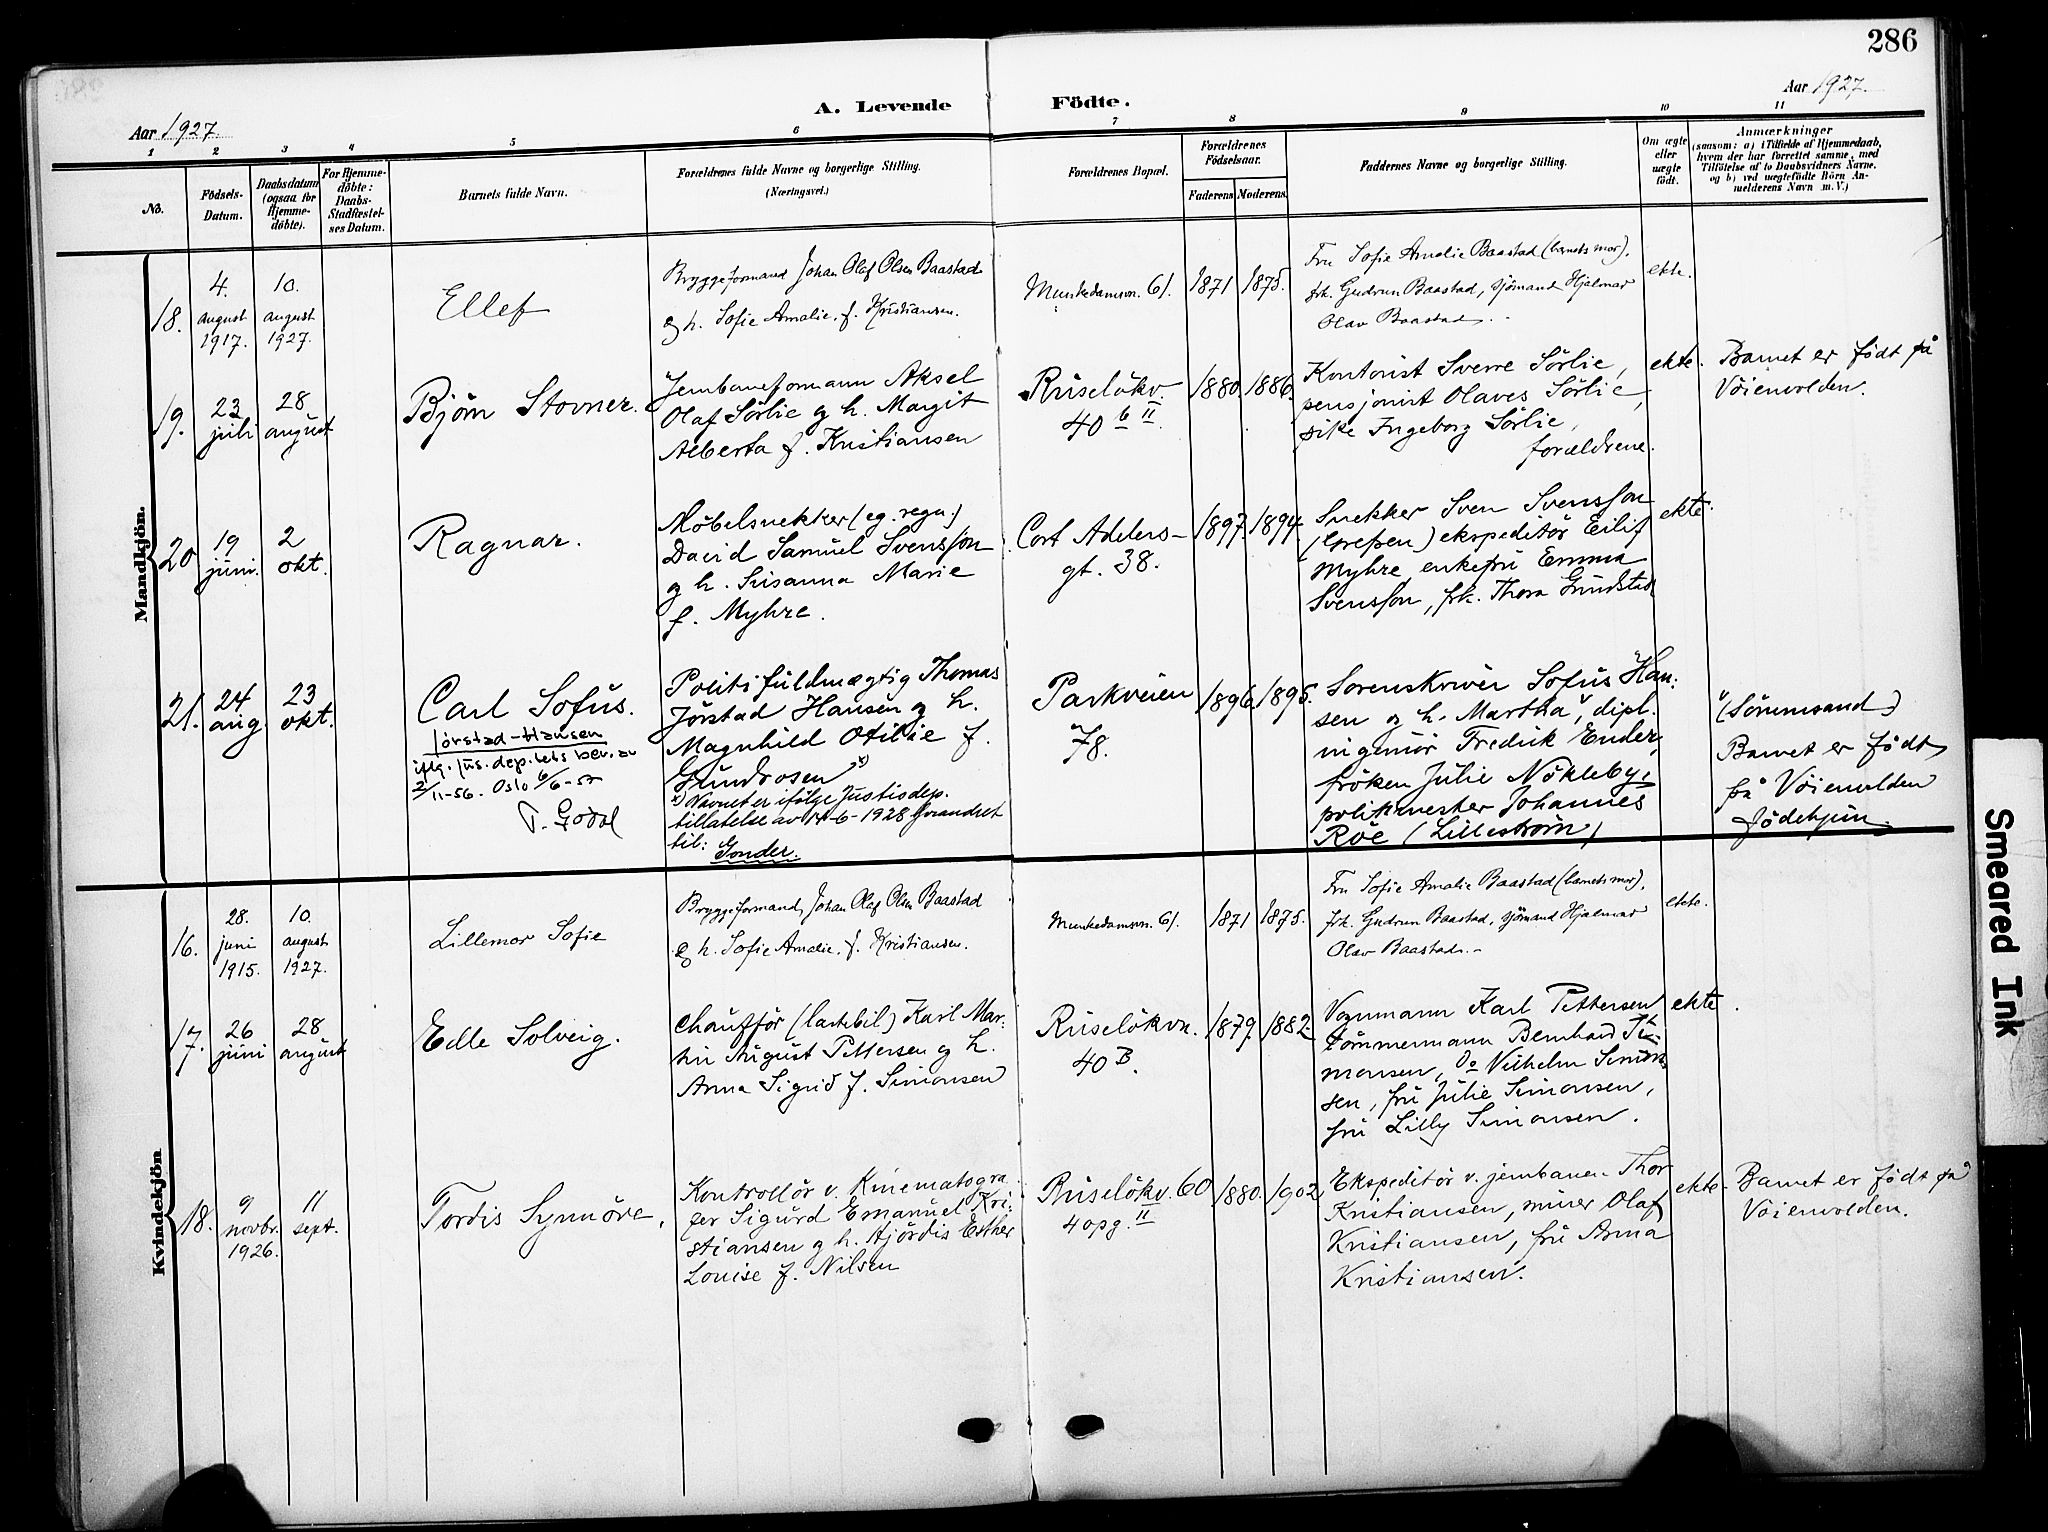 286
A. Levende Födte.
Aar 1927.
Aar 1927.
1 2 3 4 5 6 7 8 9 10 11
No.
Födsels-
Datum.
Daabsdatum
(ogsaa for
Hjemme-
døbte).
For Hjemme-
døbte:
Daabs-
Stadfæstel-
ses Datum.
Barnets fulde Navn.
Forældrenes fulde Navne og borgerlige Stilling.
(Næringsvei.)
Forældrenes Bopæl.
Forældrenes
Födselsaar.
Faderens Moderens
Faddernes Navne og borgerlige Stilling.
Om ægte
eller
uægte
födt.
Anmærkninger
(saasom: a) i Tilfælde af Hjemmedaab,
hvem der har forrettet samme, med
Tilföielse af to Daabsvidners Navne,
og b) ved uægtefödte Börn An-
melderens Navn m. V.)
Mandkjön.
18.
4.
august
1917.
10.
august
1927.
Ellef
Bryggeformand Johan Olaf Olsen Baastad
og h. Sofie Amalie, f. Kristiansen.
Munkedamsvn. 61.
1871 1875.
Fru Sofie Amalie Baastad (barnets mor).
frk. Gudrun Baastad, sjömand Hjalmar
Olav Baastad.
ekte.
19.
23
juli
28
august
Björn Stovner.
Jernbaneformann Aksel
Olaf Sörlie og h. Margit
Alberta f. Kristiansen
Ruselökv.
40 b II
1880. 1886.
Kontorist Sverre Sörlie,
pensjonist Olaves Sörlie,
pike Ingeborg Sörlie,
forældrene.
ekte.
Barnet er födt på
Vöienvolden.
20
19
juni.
2
okt.
Ragnar.
Möbelsnekker (eg. regn.)
David Samuel Svensson
og h. Susanna Marie
f. Myhre.
Cort Adelers-
gt. 38.
1897. 1894.
Snekker Sven Svensson
(Grefsen) ekspeditör Eilif
Myhre enkefru Emma
Svensson, frk. Thora Grundstad
ekte.
21.
24
aug.
23
okt.
Carl Sofus.
Jørstad-Hansen
iflg. Jus.dep.tets bev. av
2/11-56. Oslo 6/6-57
T. Godal
Politifuldmægtig Thomas
Jörstad Hansen og h.
Magnhild Otilie f.
Gundrosen x)
x) Navnet er ifölge Justisdep.
tillatelse av 14-6-1928 forandret
til: Gonder.
Parkveien
78.
1896. 1895.
Sorenskriver Sofus Han-
sen og h. Martha, dipl.
ingeniör Fredrik Ender,
fröken Julie Nökleby,
politimester Johannes
Röe (Lilleström)
(Sörumsand)
Barnet er födt
på Vöienvolden
födehjem.
Kvindekjön
16.
28.
juni
1915.
10.
august
1927.
Lillemor Sofie
Bryggeformand, Johan Olaf Olsen Baastad
og h. Sofie Amalie, f. Kristiansen.
Munkedamsvn. 61.
1871 1875.
Fru Sofie Amalie Baastad (barnets mor),
frk. Gudrun Baastad, sjömand Hjalmar
Olav Baastad.-
ekte.
17.
26
juni
28
august
Edle Solveig.
Chaufför (lastebil) Karl Mar-
tin August Pettersen og h.
Anna Sigrid f. Simonsen
Ruselökvn.
40 B.
1879. 1882.
Vognmann Karl Pettersen
tömmermann Bernhard Si-
monsen, do Vilhelm Simon-
sen, fru Julie Simonsen,
fru Lilly Simonsen.
ekte.
18.
9
novbr.
1926.
11
sept.
Tordis Synnöve.
Kontrollör v. Kinematogra-
fer Sigurd Emanuel Kri-
stiansen og h. Hjördis Esther
Louise f. Nilsen
Ruselökv. 60
4 opg. II
1880. 1902
Ekspeditör v. jernbanen Thor
Kristiansen, murer Olaf
Kristiansen, fru Anna
Kristiansen.
ekte.
Barnet er födt på
Vöienvolden.
Smeared Ink